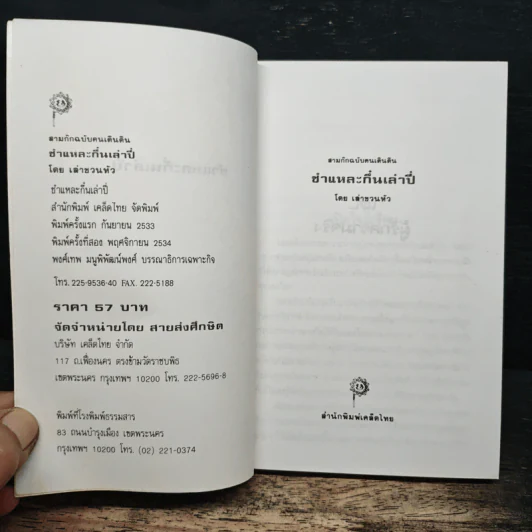 สามก๊กฉบับคนเดินดิน
ชำแหละกึ๋นเล่าปี่
โดย เล่าชวนหัว
ชำแหละกึ๋นเล่าปี่
สำนักพิมพ์ เคล็ดไทย จัดพิมพ์
พิมพ์ครั้งแรก กันยายน 2533
พิมพ์ครั้งที่สอง พฤศจิกายน 2534
พงศ์เทพ มนูพิพัฒน์พงศ์ บรรณาธิการเฉพาะกิจ
โทร. 225-9536-40 FAX. 222-5188
ราคา 57 บาท
จัดจำหน่ายโดย สายส่งศึกษิต
บริษัท เคล็ดไทย จำกัด
117 ถ.เฟื่องนคร ตรงข้ามวัดราชบพิธ
เขตพระนคร กรุงเทพฯ 10200 โทร. 222-5696-8
พิมพ์ที่โรงพิมพ์ธรรมสาร
83 ถนนบำรุงเมือง เขตพระนคร
กรุงเทพฯ 10200 โทร. (02) 221-0374
สามก๊กฉบับคนเดินดิน
ชำแหละกึ๋นเล่าปี่
โดย เล่าชวนหัว
สำนักพิมพ์เคล็ดไทย